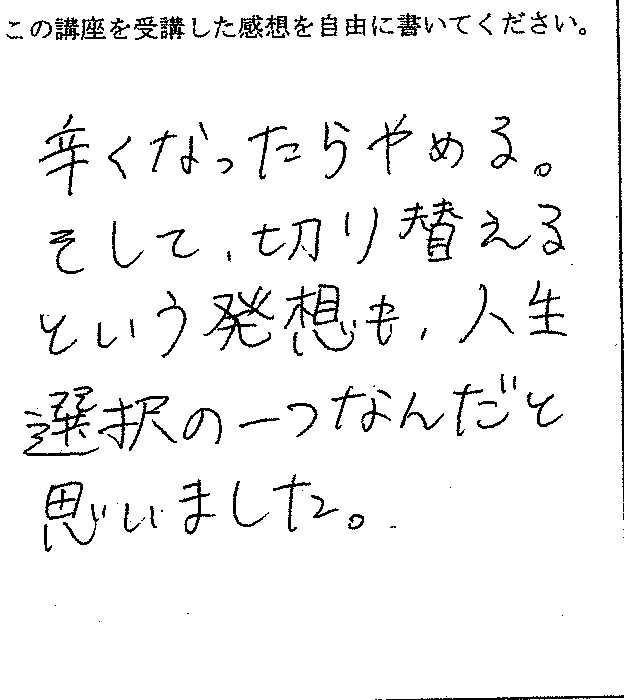 この講座を受講した感想を自由に書いてください。
辛くなったらやめる。
そして、切り替える
という発想も、人生
選択の一つなんだと
思いました。